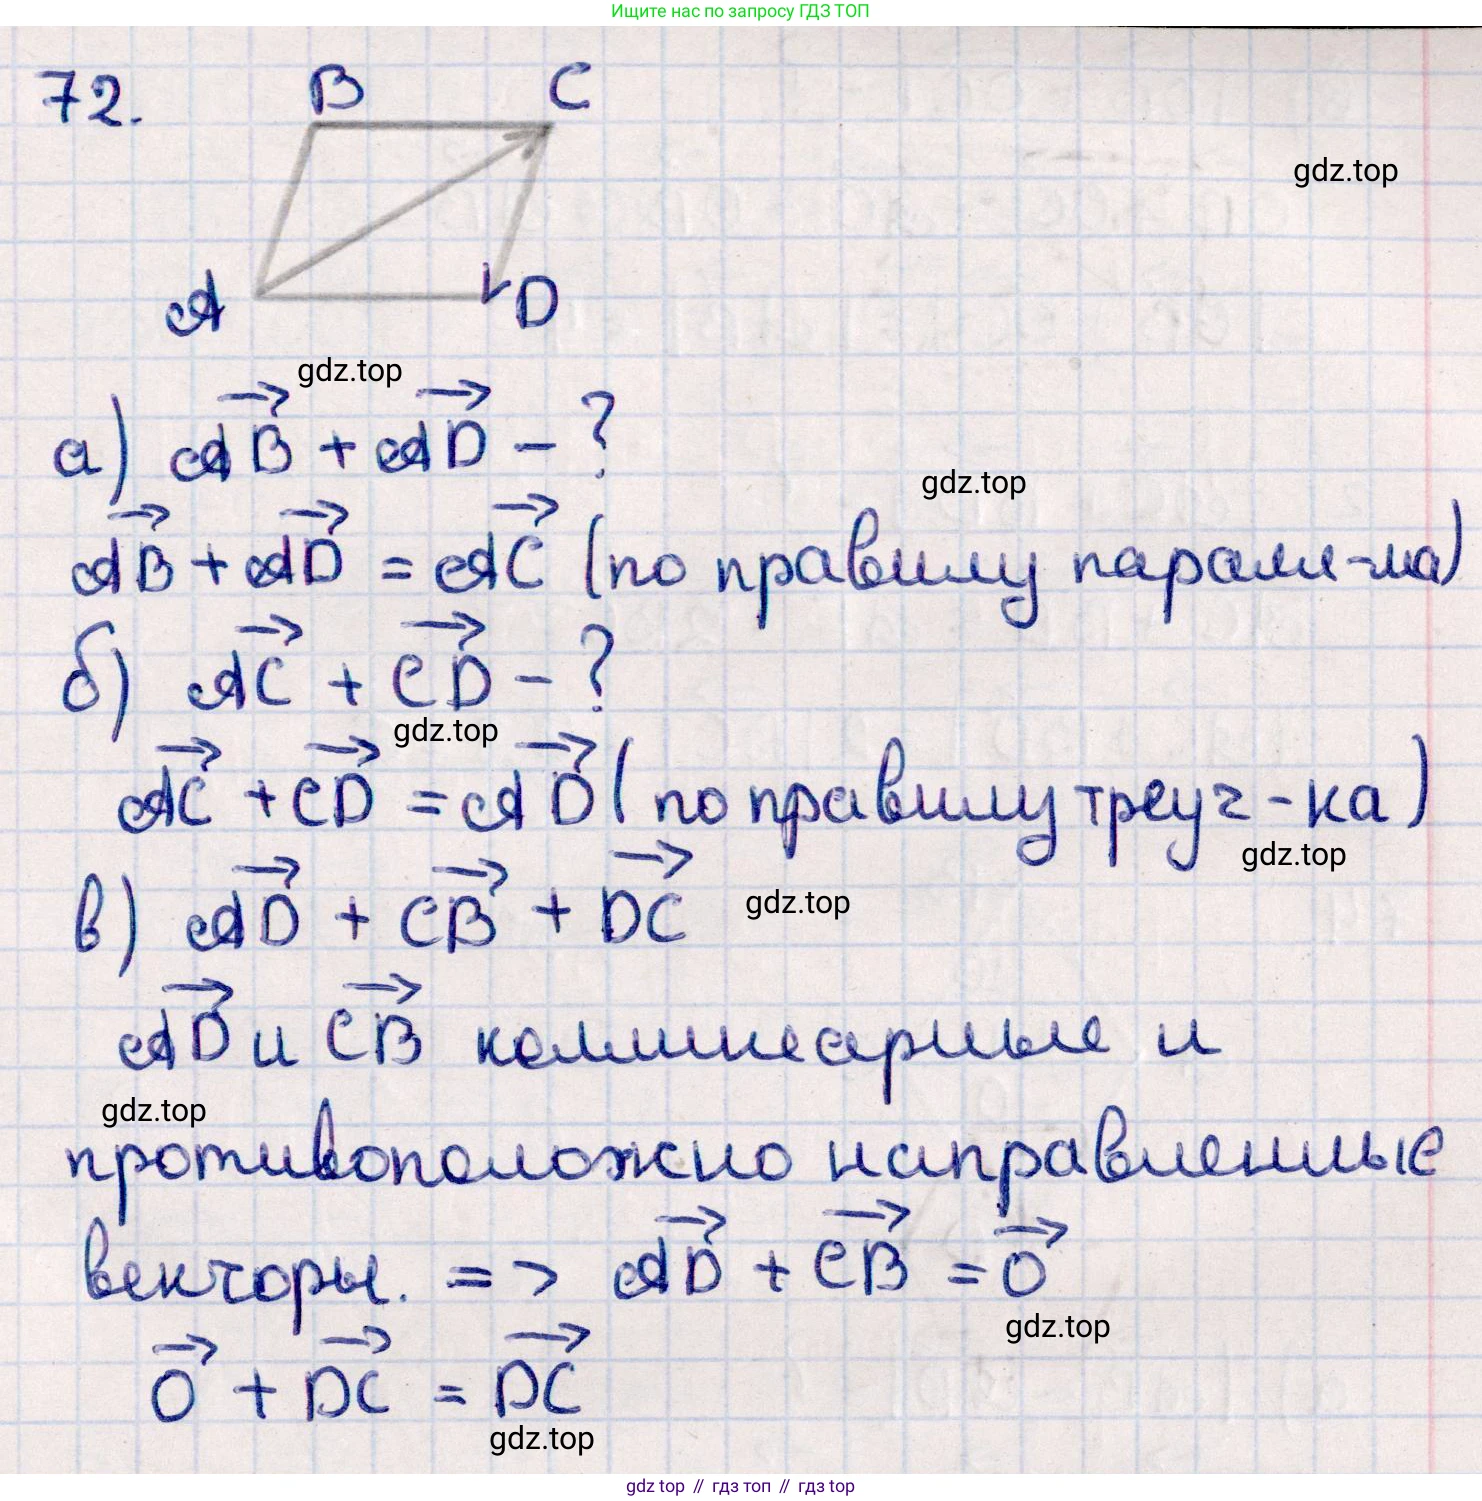 Ищите нас по запросу ГДЗ ТОП
72.
B
C
gdz.top
A
D
gdz.top
а) AB + AD - ?
gdz.top
AB + AD = AC (по правилу парал-ма)
б) AC + CD - ?
gdz.top
AC + CD = AD (по правилу треуг-ка)
gdz.top
в) AD + CB + DC
gdz.top
AD и CB коллинеарные и
gdz.top
противоположно направленные
векторы. => AD + CB = 0
gdz.top
0 + DC = DC
gdz.top
gdz top // гдз топ // gdz top